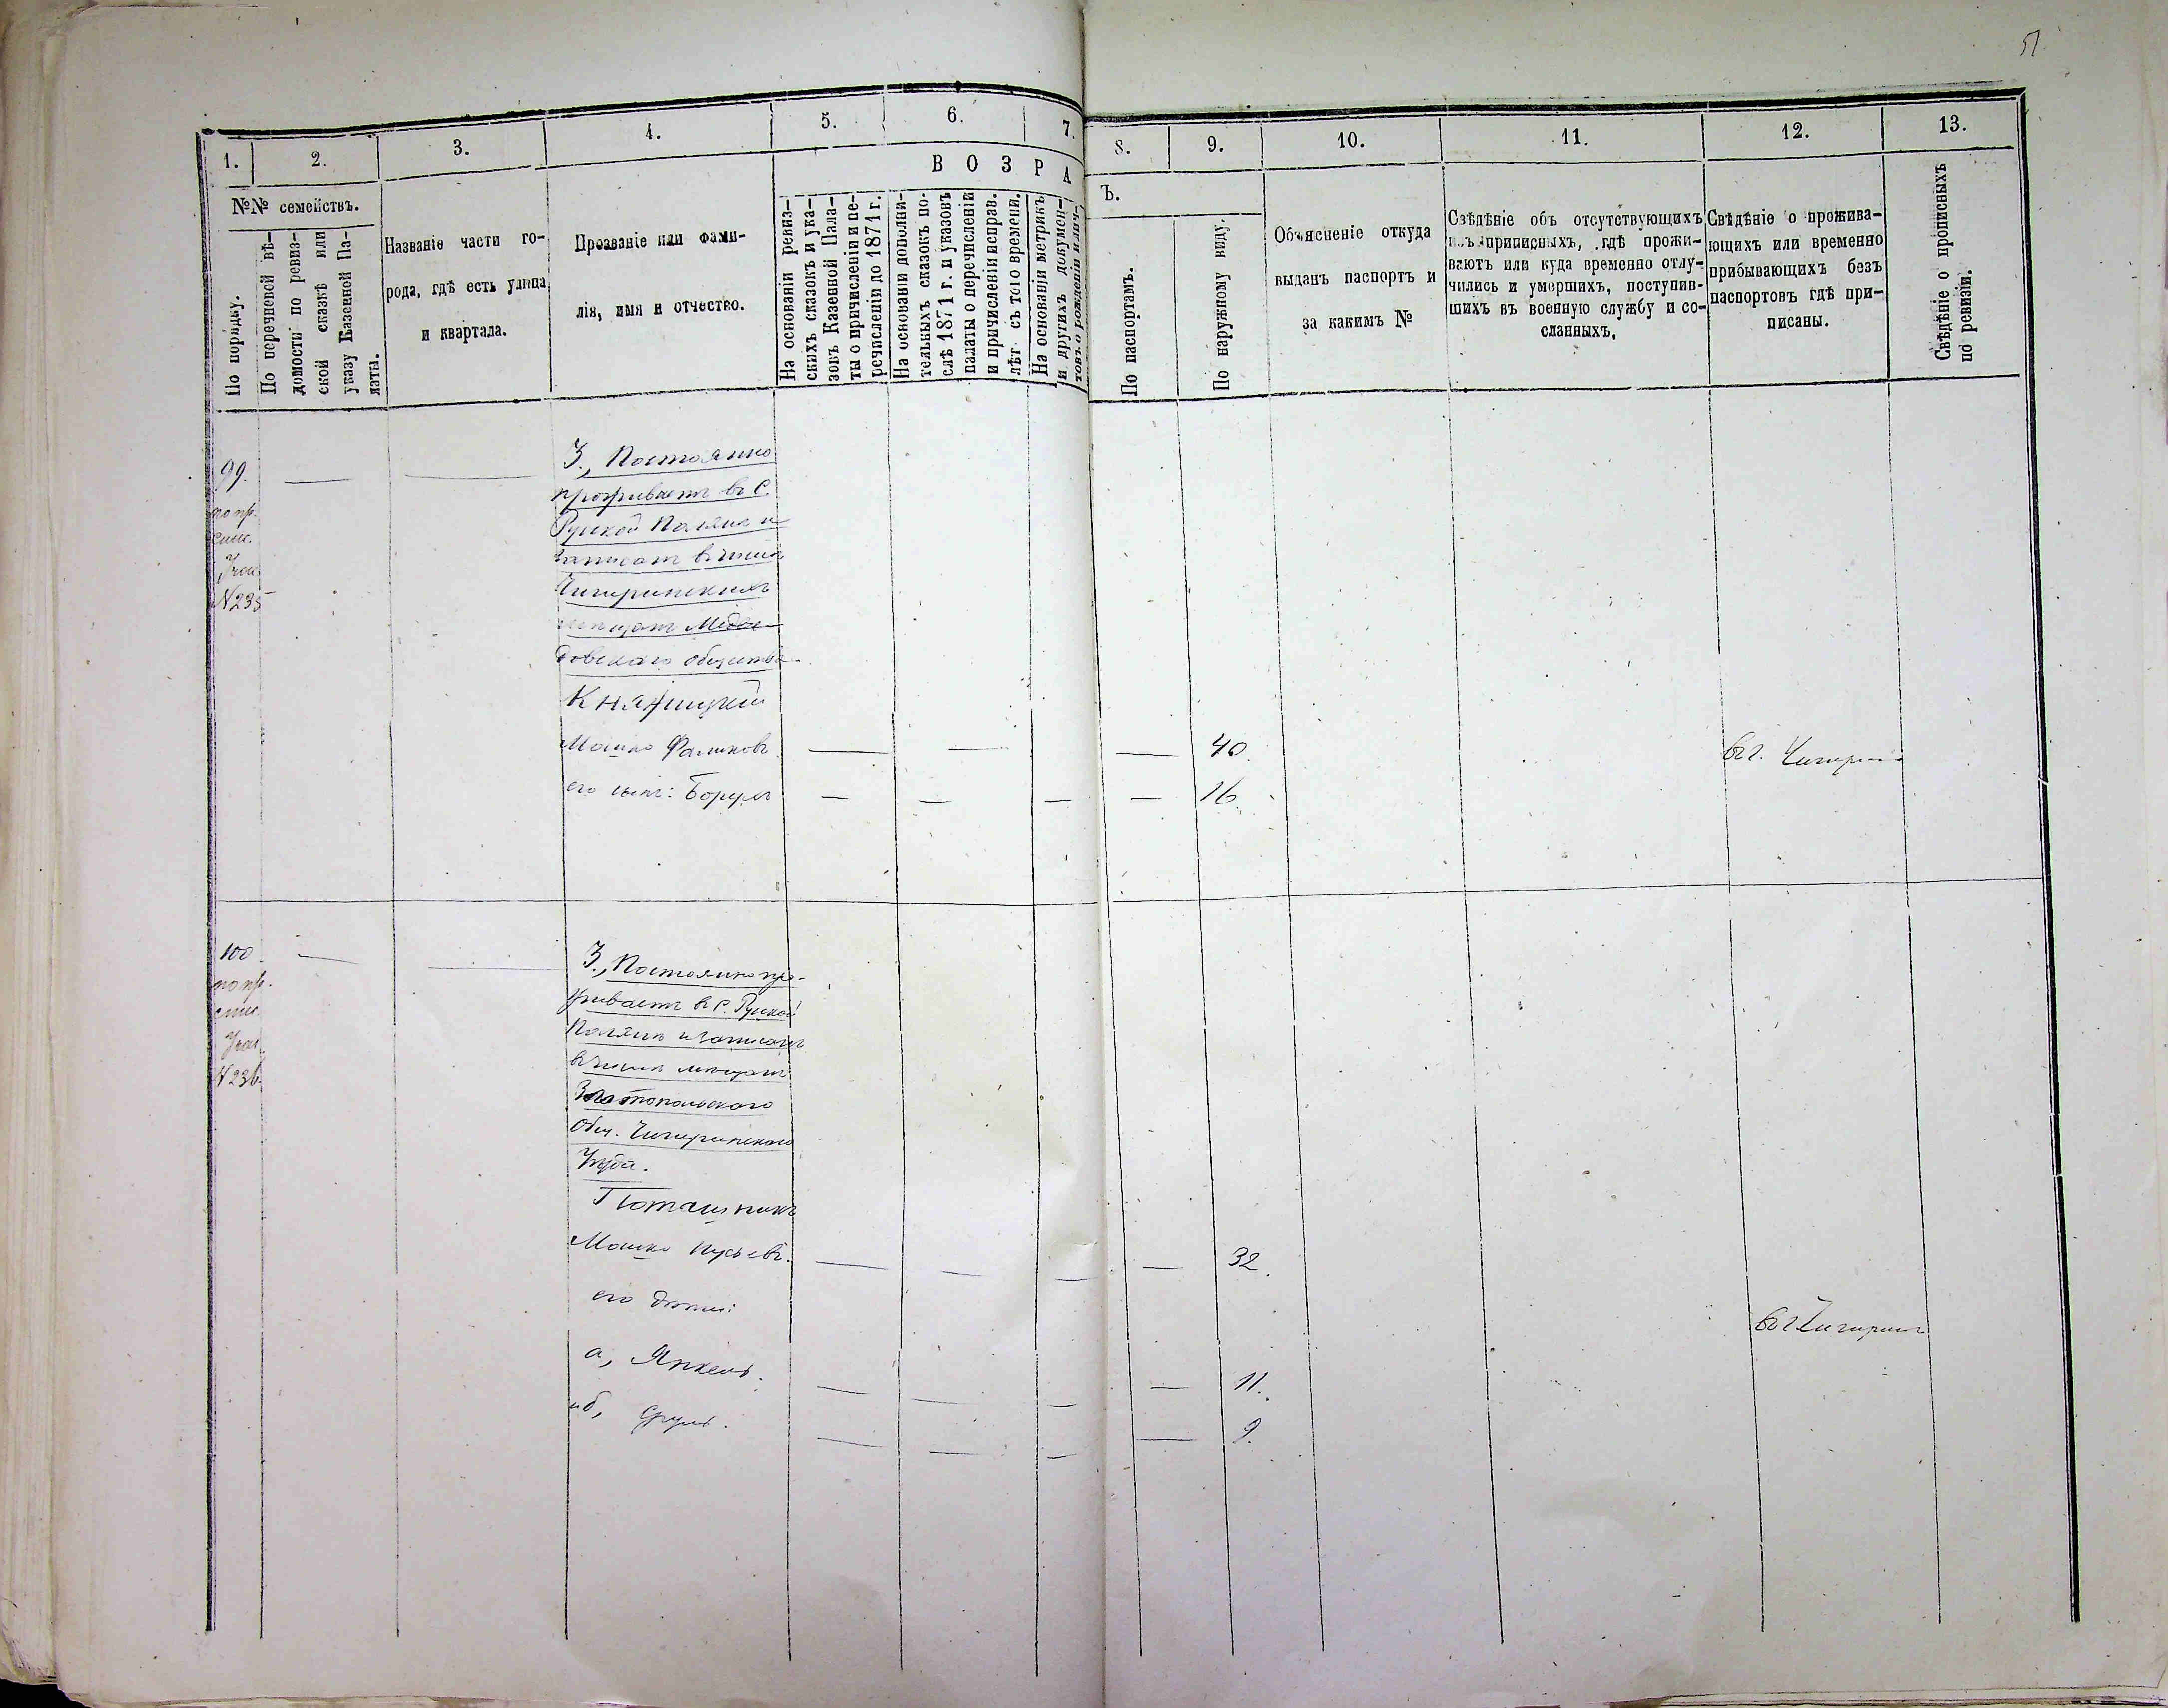 51
1.
2.
3.
4.
5.
6.
7.
8.
9.
10.
11.
12.
13.
В О З Р А
Ъ.
№№ семействъ.
По порядку.
По перечневой вѣ-
домости по ревиз-
ской сказкѣ или
указу Казенной Па-
латы.
Названіе части го-
рода, гдѣ есть улица
и квартала.
Прозваніе или фами-
лія, имя и отчество.
На основаніи ревиз-
скихъ сказокъ и ука-
зовъ Казенной Пала-
ты о причисленіи и пе-
речисленіи до 1871 г.
На основаніи дополни-
тельныхъ сказокъ по-
слѣ 1871 г. и указовъ
палаты о перечисленіи
и причисленіи исправ.
лѣт съ того времени.
На основаніи метрикъ
и другихъ докумен-
товъ о рожденіи и лич-
По паспортамъ.
По наружному виду.
Объясненіе откуда
выданъ паспортъ и
за какимъ №
Свѣдѣніе объ отсутствующихъ
изъ приписныхъ, гдѣ прожи-
ваютъ или куда временно отлу-
чились и умершихъ, поступив-
шихъ въ военную службу и со-
сланныхъ.
Свѣдѣніе о прожива-
ющихъ или временно
прибывающихъ безъ
паспортовъ гдѣ при-
писаны.
Свѣдѣніе о прописныхъ
по ревизіи.
99.
по пр.
спис.
N 235
3., Постоянно
проживаетъ въ С.
Руской Полянѣ и
записанъ въ числѣ
Чигиринскихъ
мѣщанъ Медве-
довскаго общества
Княжицкій
Мошко Фальковъ
40.
въ г. Чигиринѣ
его сынъ: Борухъ
16.
100
по пр.
спис.
N 236.
3., Постоянно про-
живаетъ въ С. Руской
Полянѣ и записанъ
въ числѣ мѣщанъ
Златопольскаго
Общ. Чигиринскаго
Уѣзда.
Поташникъ
Мошко Нусьевъ.
32.
его дѣти:
въ г Чигиринѣ
а, Янкель.
11.
и б, Сруль.
9.